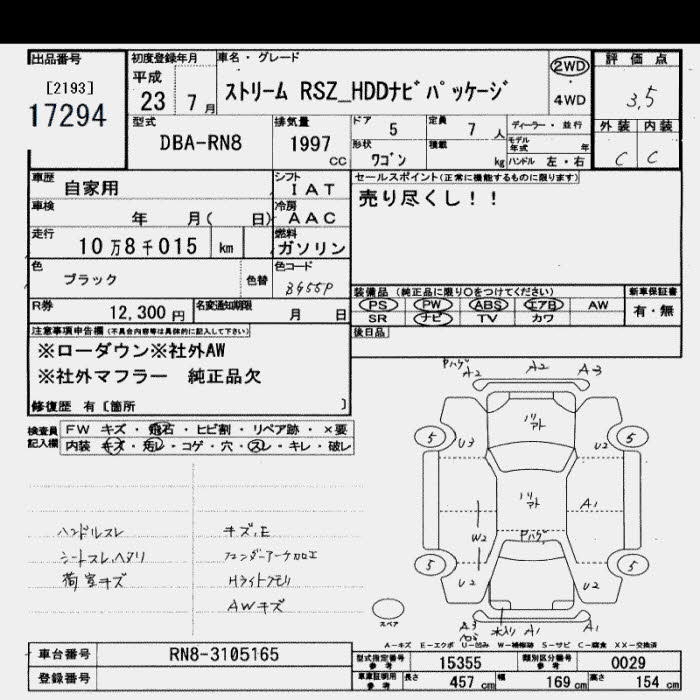 出品番号
[2193]
17294
初度登録年月
平成
23 7 月
車名・グレード
ストリーム RSZ_HDDナビパッケージ
2WD
・
4WD
評価点
3,5
外装 内装
C C
型式
DBA-RN8
排気量
1997
CC
ドア
5
定員
7 人
形状
ワゴン
積載
kg
ディーラー・並行
モデル年式 年
ハンドル 左・右
車歴
自家用
シフト
IAT
車検
年 月( 日)
冷房
AAC
走行
10万8千015 km
燃料
ガソリン
色
ブラック
色替
色コード
B955P
R券
12,300 円
名変通知期限
月 日
セールスポイント(正常に機能するものに限ります)
売り尽くし!!
装備品(純正品に限り○をつけてください)
PS PW ABS エアB AW
SR ナビ TV カワ
新車保証書
有・無
後日品
注意事項申告欄(不具合内容等は具体的に記入して下さい)
※ローダウン※社外AW
※社外マフラー 純正品欠
修復歴 有〔箇所 〕
検査員
記入欄
FW キズ・飛石・ヒビ割・リペア跡・×要
内装 キズ・汚レ・コゲ・穴・スレ・キレ・破レ
ハンドルスレ
シートスレ,ヘタリ
荷室キズ
キズ,E
フェンダーアーチカロエ
Hライトクモリ
AWキズ
Pハゲ
A2 A2 A3
ノリマト
5 5
U3 U2
ノリマト
A1
W2
Pハゲ
5 5
U2 U2
スペア
A3 水入り A1 A1
A-キズ E-エクボ U-凹み W-補修跡 S-サビ C-腐食 XX-交換済
車台番号
RN8-3105165
登録番号
型式指定番号
参考
15355
類別区分番号
参考
0029
車庫証明用
参考
長さ
457 cm
幅
169 cm
高さ
154 cm